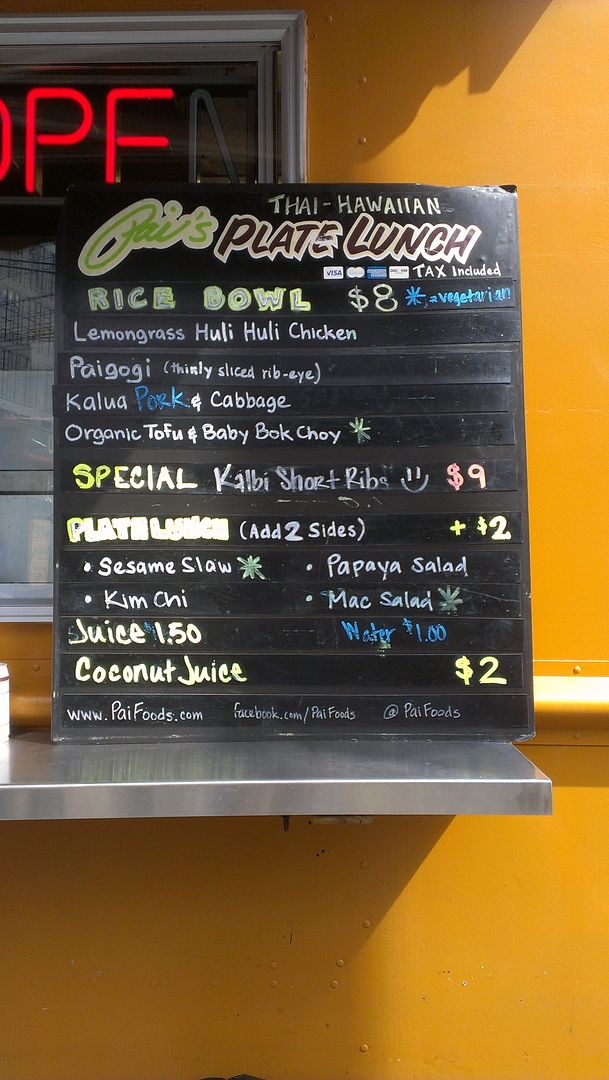 OPEN
THAI-HAWAIIAN
Pai's PLATE LUNCH
VISA TAX Included
RICE BOWL $8 * = vegetarian
Lemongrass Huli Huli Chicken
Paigogi (thinly sliced rib-eye)
Kalua Pork & Cabbage
Organic Tofu & Baby Bok Choy *
SPECIAL Kalbi Short Ribs $9
PLATE LUNCH (Add 2 Sides) + $2
• Sesame Slaw * • Papaya Salad
• Kim Chi • Mac Salad *
Juice $1.50 Water $1.00
Coconut Juice $2
www.PaiFoods.com facebook.com/PaiFoods @PaiFoods